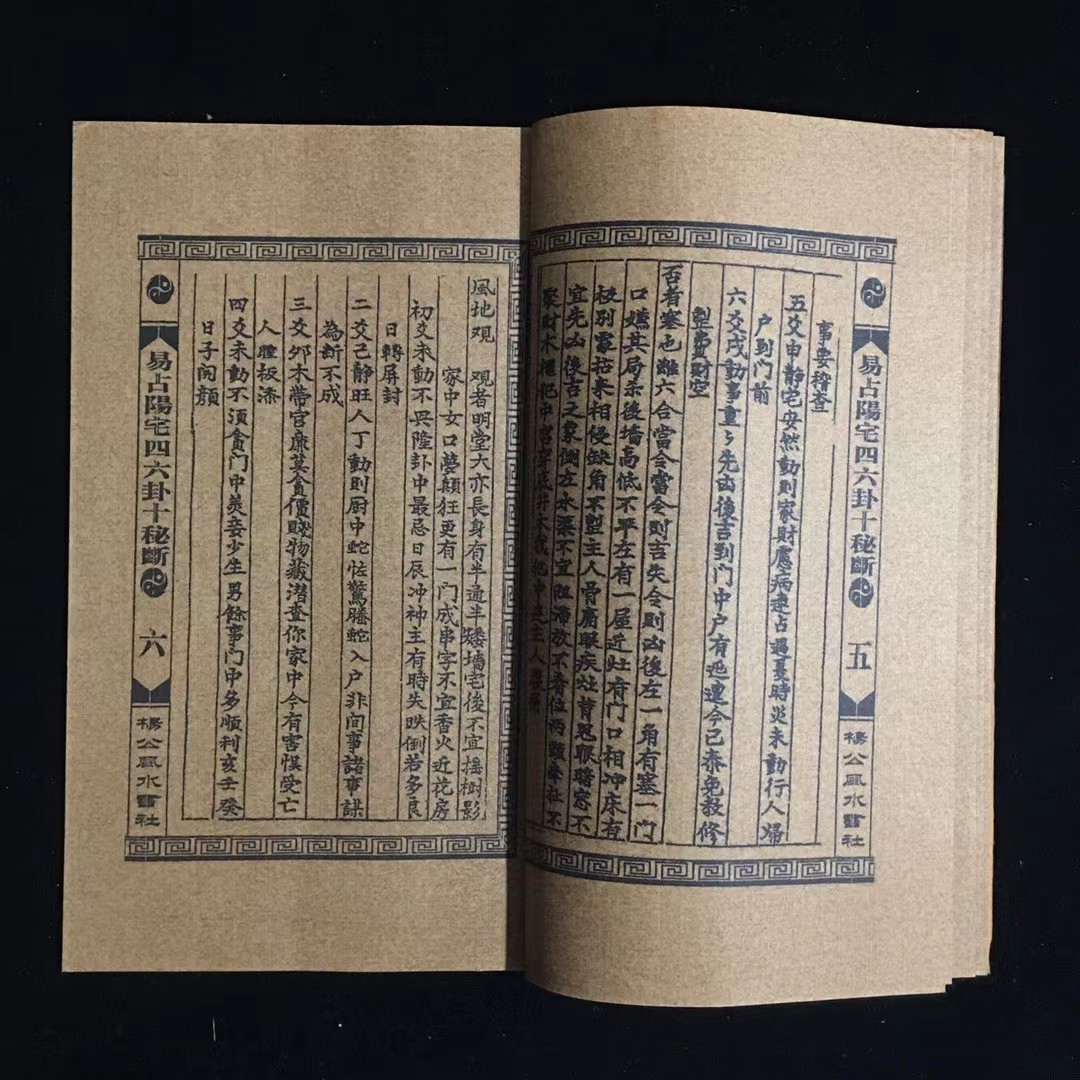 易占陽宅四六卦十秘斷
五
楊公風水書社
事要稽查
五爻申静宅安然動則家財慮病遭占遇夏時炎未動行人歸
户到門前
六爻戌動事重々先凶後吉到门中户有迍邅今已泰免教修
整費財空
否者塞也雖六合當令當令則吉失令則凶後左一角有塞一门
口嫌其局杀後墙高低不平左有一屋近灶有门口相冲床有
板别露枯来相侵缺角不整主人骨腐眼疾灶背忌眼瞎窓不
宜先凶後吉之象側左水渠不宜阻滞放不看位两頭
聚财木
風地观　覌者明堂大亦長身有半通半矮墙宅後不宜摇樹影
家中女口夢顛狂更有一门成串字不宜香火近花房
初爻未動不畏陞卦中最忌日辰冲神主有時失跌倒若多良
日轉屏封
二爻己静旺人丁動則厨中蛇怯驚騰蛇入户非间事諸事謀
為断不成
三爻夘木带官廉莫貪價賤物藏潜查你家中今有害悮受亡
人膣板漆
四爻未動不須貪门中美妾少生男餘事门中多順利亥壬癸
日子闲顔
易占陽宅四六卦十秘斷
六
楊公風水書社